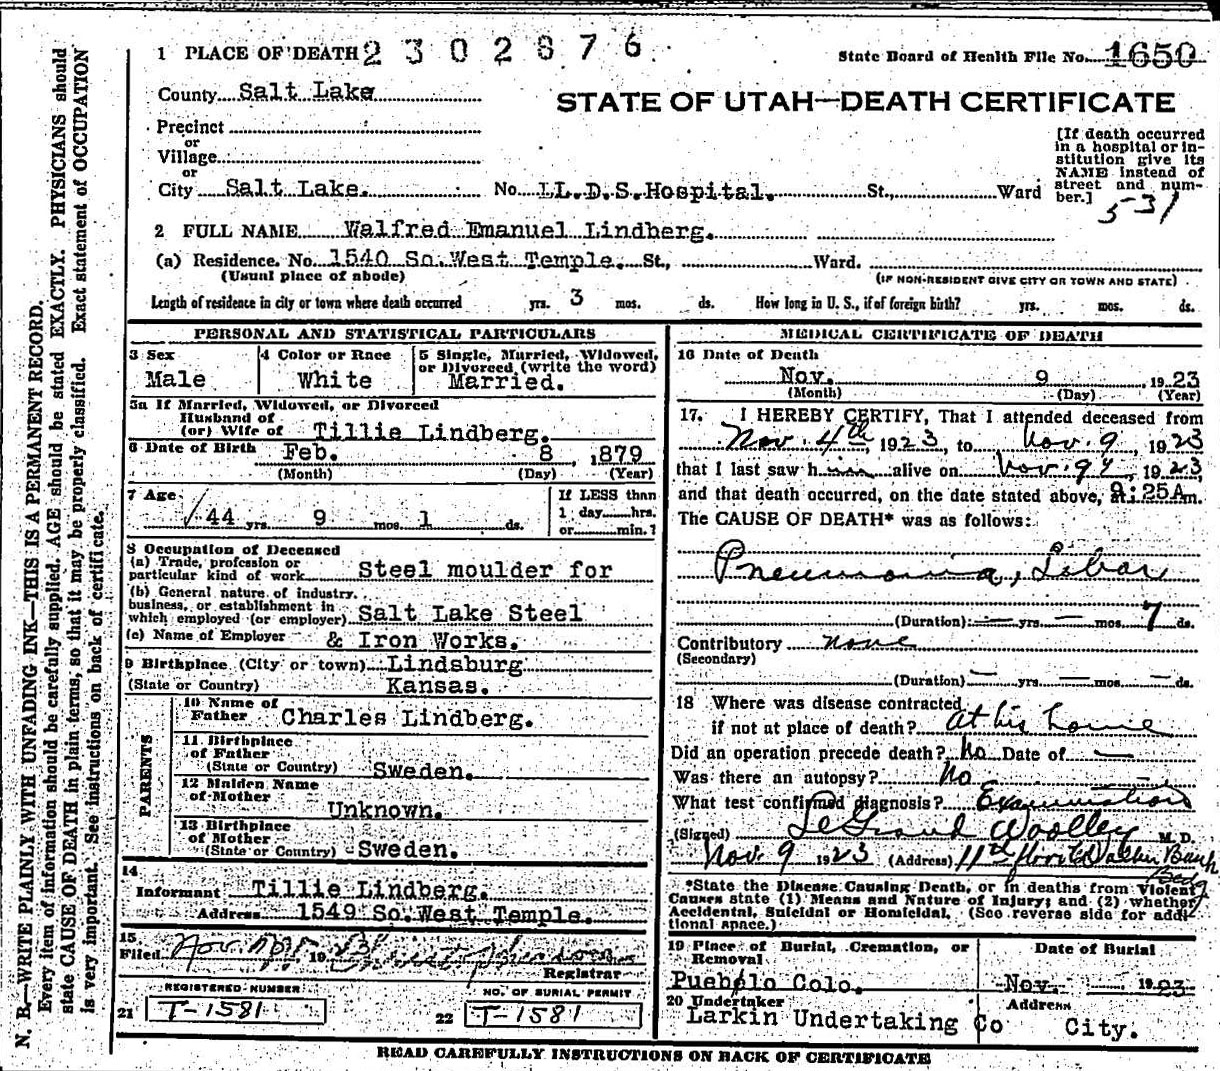 1 PLACE OF DEATH 2302876
State Board of Health File No. 1650
County Salt Lake
STATE OF UTAH—DEATH CERTIFICATE
Precinct
or
Village
or
City Salt Lake. No. LL.D.S. Hospital. St., Ward
[If death occurred
in a hospital or in-
stitution give its
NAME instead of
street and num-
ber.]
531
2 FULL NAME Walfred Emanuel Lindberg.
(a) Residence. No. 1540 So. West Temple. St., Ward.
(Usual place of abode) (IF NON-RESIDENT GIVE CITY OR TOWN AND STATE)
Length of residence in city or town where death occurred yrs. 3 mos. ds. How long in U. S., if of foreign birth? yrs. mos. ds.
PERSONAL AND STATISTICAL PARTICULARS
3 Sex
Male
4 Color or Race
White
5 Single, Married, Widowed,
or Divorced (write the word)
Married.
5a If Married, Widowed, or Divorced
Husband of
(or) Wife of Tillie Lindberg.
6 Date of Birth Feb. 8 ,1879
(Month) (Day) (Year)
7 Age
44 yrs. 9 mos. 1 ds.
If LESS than
1 day hrs.
or min.?
8 Occupation of Deceased
(a) Trade, profession or
particular kind of work Steel moulder for
(b) General nature of industry.
business, or establishment in
which employed (or employer) Salt Lake Steel
(c) Name of Employer & Iron Works.
9 Birthplace (City or town) Lindsburg
(State or Country) Kansas.
PARENTS
10 Name of
Father Charles Lindberg.
11 Birthplace
of Father
(State or Country) Sweden.
12 Maiden Name
of Mother
Unknown.
13 Birthplace
of Mother
(State or Country) Sweden.
14
Informant Tillie Lindberg.
Address 1549 So. West Temple.
15
Filed Nov 19
Registrar
REGISTERED NUMBER
21 T-1581
NO. OF BURIAL PERMIT
22 T-1581
MEDICAL CERTIFICATE OF DEATH
16 Date of Death
Nov. 9 , 1923
(Month) (Day) (Year)
17. I HEREBY CERTIFY, That I attended deceased from
Nov. 4th 1923, to Nov. 9, 1923
that I last saw him alive on Nov. 9th, 1923,
and that death occurred, on the date stated above, at 9:25A m.
The CAUSE OF DEATH* was as follows:
Pneumonia, Lobar
(Duration) — yrs. — mos. 7 ds.
Contributory none
(Secondary)
(Duration) — yrs. — mos. — ds.
18 Where was disease contracted
if not at place of death? At his home
Did an operation precede death? No Date of —
Was there an autopsy? No
What test confirmed diagnosis? Examination
(Signed) LeGrand Woolley M. D.
Nov. 9 1923 (Address) 11th floor Walker Bank
Bldg
*State the Disease Causing Death, or in deaths from Violent
Causes state (1) Means and Nature of Injury; and (2) whether
Accidental, Suicidal or Homicidal. (See reverse side for addi-
tional space.)
19 Place of Burial, Cremation, or
Removal
Pueblo Colo.
Date of Burial
Nov. 1923
20 Undertaker
Larkin Undertaking Co
Address
City.
READ CAREFULLY INSTRUCTIONS ON BACK OF CERTIFICATE
N. B.—WRITE PLAINLY WITH UNFADING INK—THIS IS A PERMANENT RECORD.
Every item of information should be carefully supplied. AGE should be stated EXACTLY. PHYSICIANS should
state CAUSE OF DEATH in plain terms, so that it may be properly classified. Exact statement of OCCUPATION
is very important. See instructions on back of certificate.